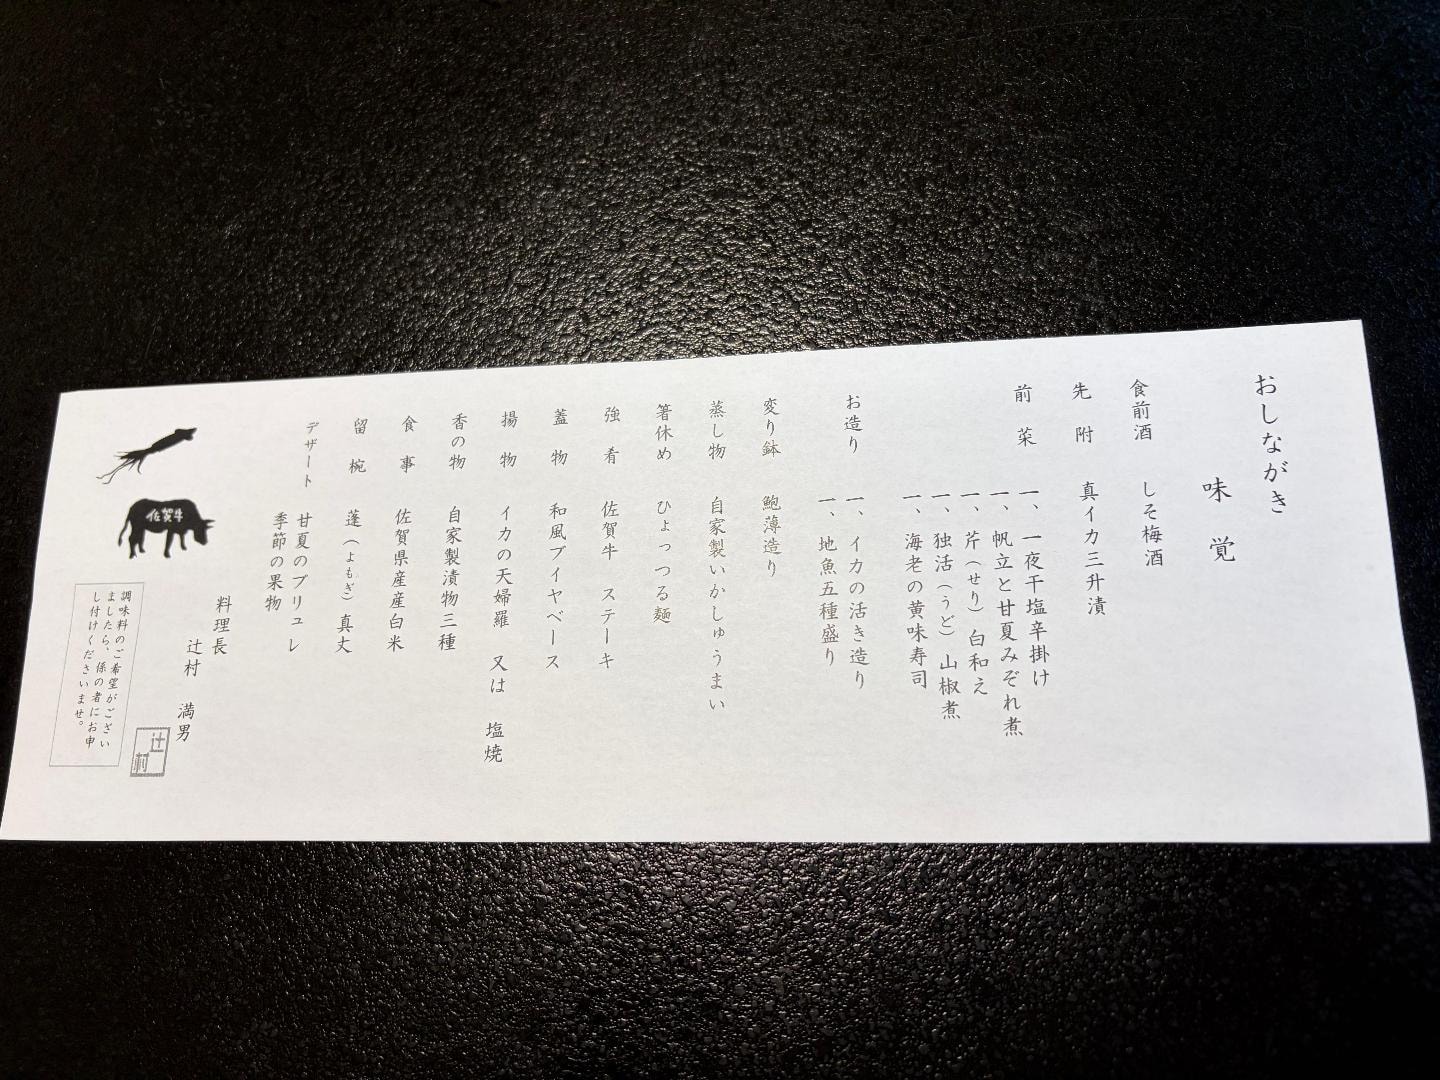 おしながき
味覚
食前酒 しそ梅酒
先附 真イカ三升漬
前菜 一、一夜干塩辛掛け
一、帆立と甘夏みぞれ煮
一、芹（せり）白和え
一、独活（うど）山椒煮
一、海老の黄味寿司
お造り 一、イカの活き造り
一、地魚五種盛り
変り鉢 鮑薄造り
蒸し物 自家製いかしゅうまい
箸休め ひょっつる麺
強肴 佐賀牛 ステーキ
蓋物 和風ブイヤベース
揚物 イカの天婦羅 又は 塩焼
香の物 自家製漬物三種
食事 佐賀県産産白米
留椀 蓬（よもぎ）真丈
デザート 甘夏のブリュレ
季節の果物
料理長
辻村 満男
辻村
佐賀牛
調味料のご希望がござい
ましたら、係の者にお申
し付けくださいませ。